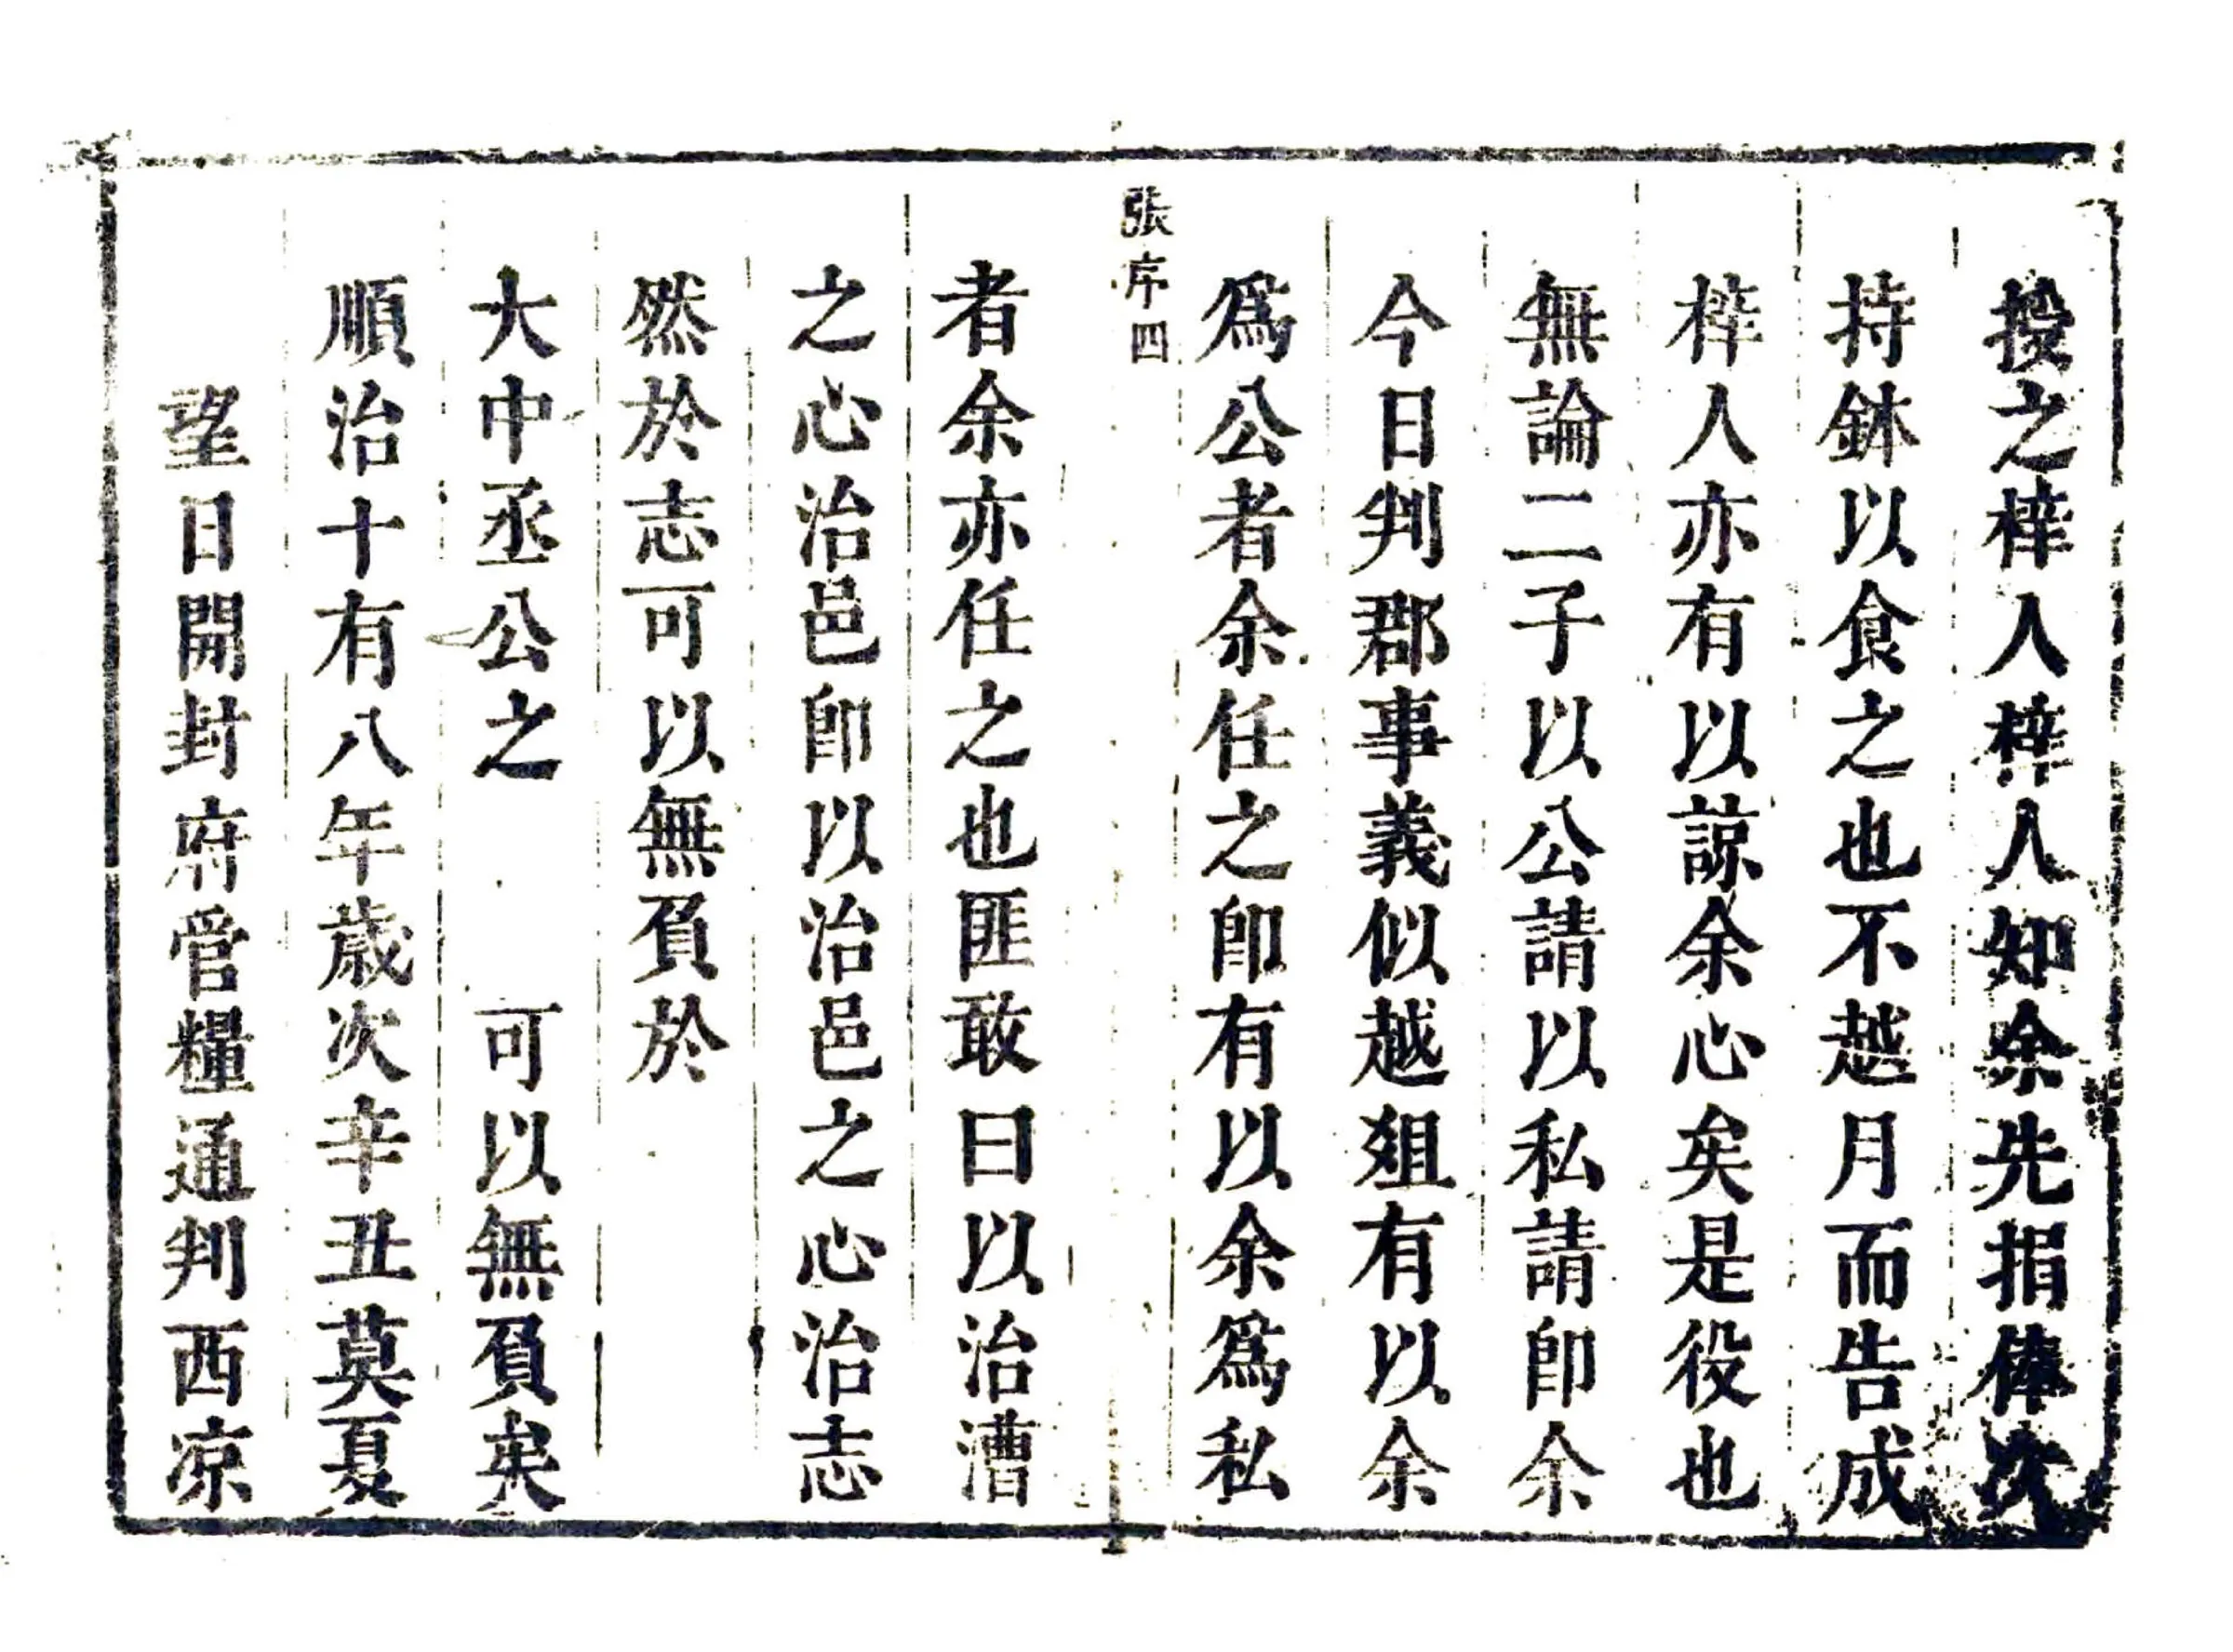 授之梓人梓人知余先捐俸次
持鉢以食之也不越月而告成
梓人亦有以諒余心矣是役也
無論二子以公請以私請卽余
今日判郡事義似越爼有以余
爲公者余任之卽有以余爲私
張序四
者余亦任之也匪敢曰以治漕
之心治邑卽以治邑之心治志
然於志可以無負於
大中丞公之　　可以無負矣
順治十有八年歲次辛丑莫夏
望日開封府管糧通判西凉